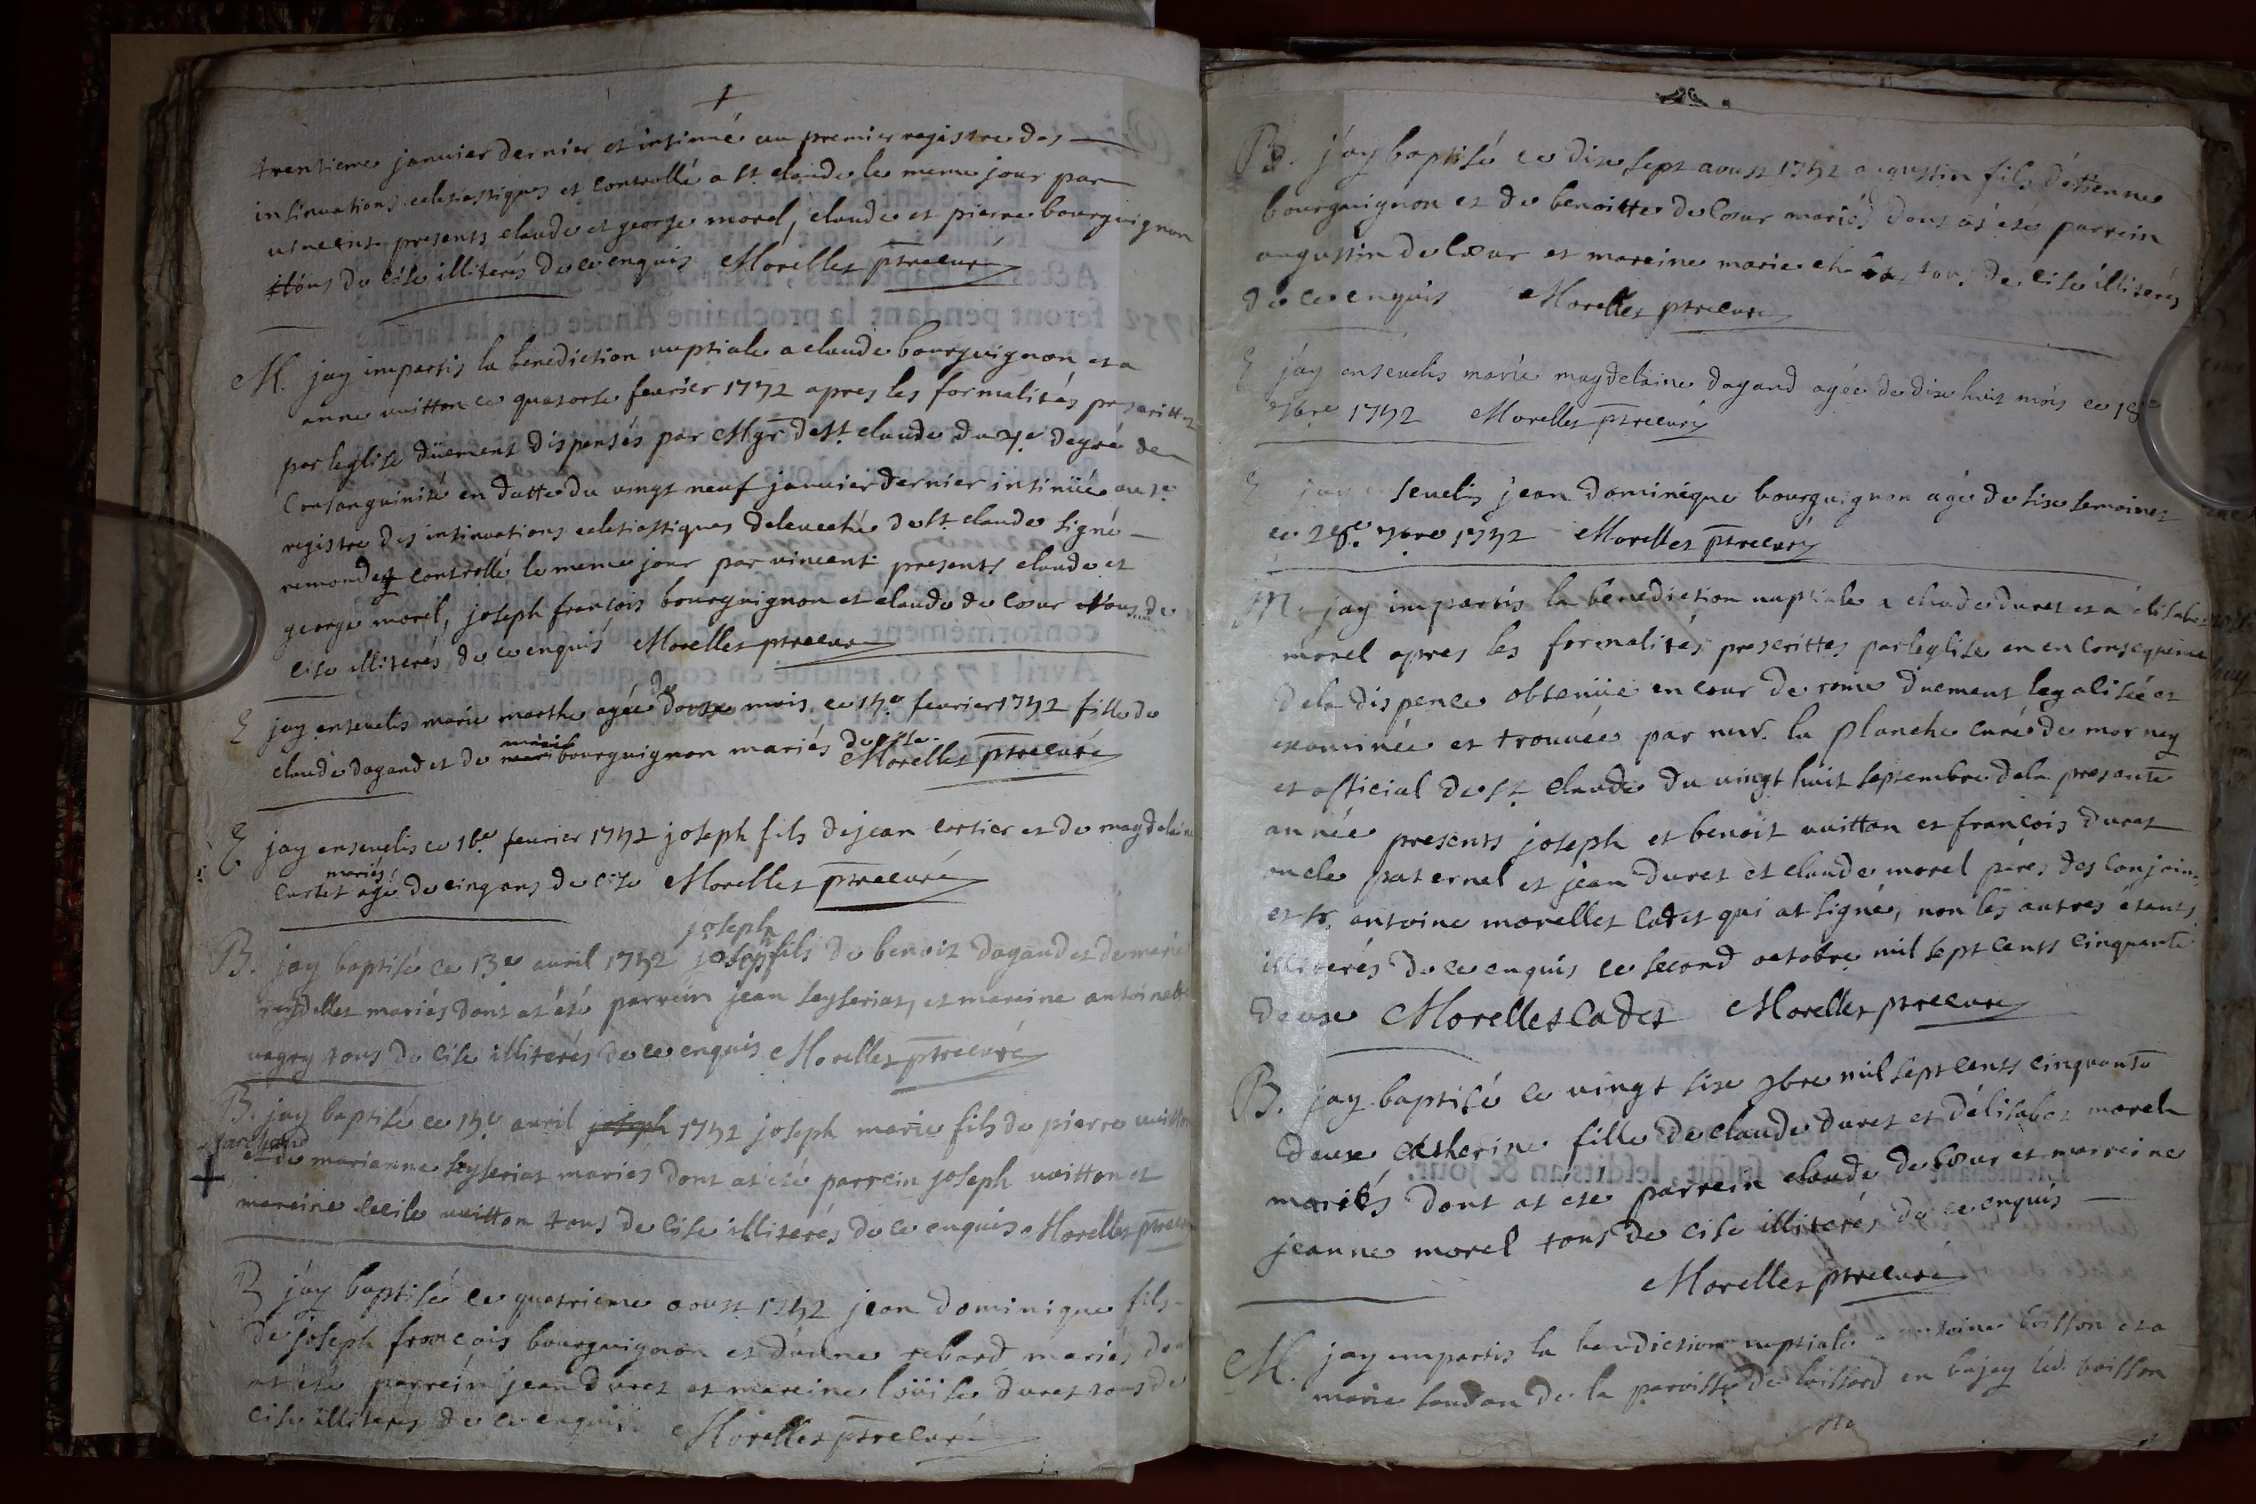 trentieme januier dernier et insinué au premier registre des
insinuations eclesiastiques et controllé a st claude le meme jour par
uincent presents claude et george morel, claude et pierre bourguignon
tous de cise illiterés de ce enquis Morellet ptre curé
M. jay impartis la benediction nuptiale a claude bourguignon et a
anne uuitton ce quatorse feurier 1752 apres les formalités prescrittes
par leglise düement dispensés par Mgr de st. claude du 4e degré de
Consanguinité en datte du uingt neuf januier dernier insinüé au 1e
registre des insinuations eclesiastiques deleueché de st claude signé
remond et controllé le meme jour par uincent presents claude et
george morel, joseph françois bourguignon et claude de Cœur tous de
cise illiterés de ce enquis Morellet ptre curé
E jay enseuelis marie marthe agée de douse mois ce 15e feurier 1752 fille de
claude dagand et de marie bourguignon mariés de cise.
Morellet ptre curé
E jay enseuelis ce 16e feurier 1752 joseph fils de jean cortier et de magdelaine
Curtet mariés agé de cinq ans de cise Morellet ptre curé
joseph
B. jay baptisé ce 13e auril 1752 joseph fils de benoit dagand et de marie
reydellet mariés dont at été parrein jean seyseriat, et mareine antoinette
uagry tous de cise illiterés de ce enquis Morellet ptre curé
B. jay baptisé ce 15e auril joseph 1752 joseph marie fils de pierre uuitton
et de marianne seyseriat mariés dont at été parrein joseph uuitton et
mareine cecile uuitton tous de cise illiterés de ce enquis Morellet ptre curé
B jay baptisé ce quatrieme aoust 1752 jean dominique fils
de joseph françois bourguignon et d'anne rebard mariés dont
at été parrein jean duret et mareine loüise duret tous de
cise illiterés de ce enquis Morellet ptre curé
B. jay baptisé ce dix sept aoust 1752 augustin fils d'étienne
bourguignon et de benoitte de Cœur mariés dont at été parrein
augustin de Cœur et mareine marie tous de cise illiterés
de ce enquis Morellet ptre curé
E jay enseuelis marie magdelaine dagand agée de dix huit mois ce 18e
7bre 1752 Morellet ptre curé
E jay enseuelis jean dominique bourguignon agé de six semaines
ce 28e. 7bre 1752 Morellet ptre curé
M. jay impartis la benediction nuptiale a claude duret et a élisabet
morel apres les formalités prescrittes par leglise en en consequence
de la dispence obtenüe en cour de rome duement legalisée et
examinée et trouuée par mr. la planche curé de mornay
et official de st. claude du uingt huit septembre de la presente
année presents joseph et benoit uuitton et françois duret
oncle paternel et jean duret et claude morel péres des conjoins
et sr. antoine morellet cadet qui at signé, non les autres étants
illiterés de ce enquis ce second octobre mil sept cents cinquante
deux Morellet Cadet Morellet ptre curé
B. jay baptisé ce uingt six 9bre mil sept cents cinquante
deux catherine fille de claude duret et délisabet morel
mariés dont at été parrein claude de Cœur et mareine
jeanne morel tous de cise illiterés de ce enquis
Morellet ptre curé
M. jay impartis la benediction nuptiale a antoine boisson et a
marie de la paroisse de en bujey led. boisson